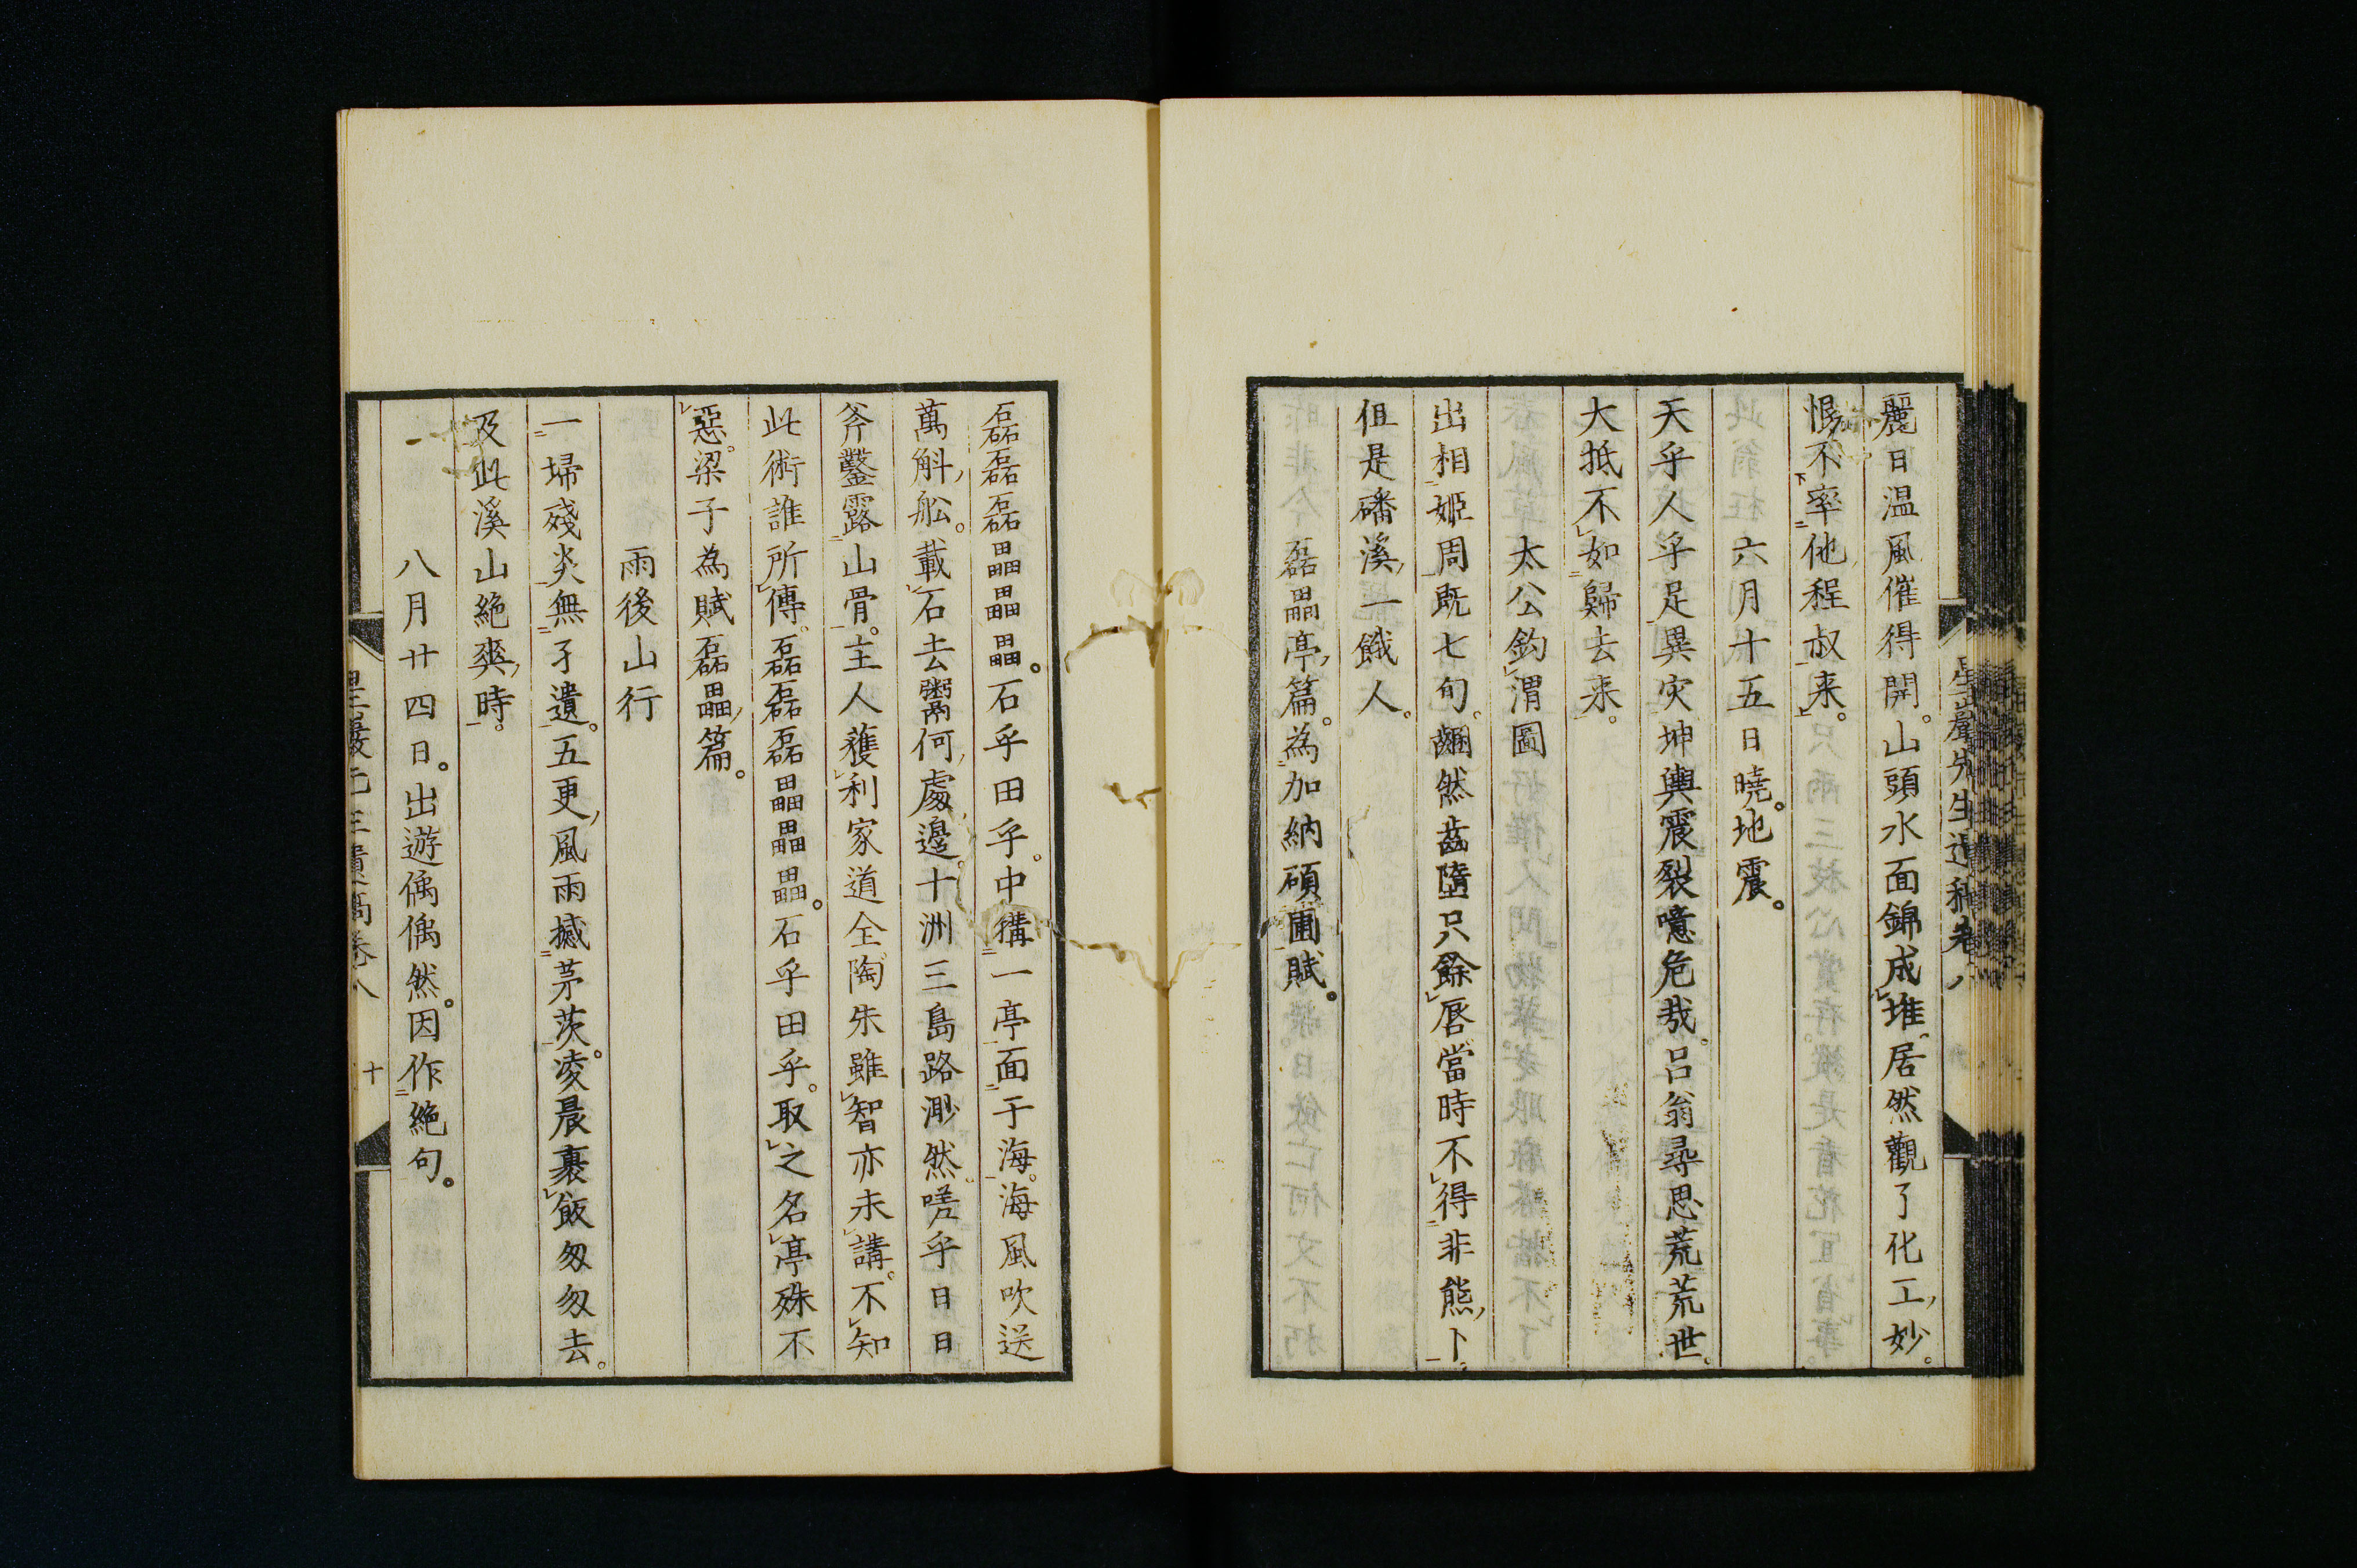 麗日温風催得開。山頭水面錦成堆。居然觀了化工妙。
恨不率他程叔来。
六月十五日曉。地震。
天乎人乎足異灾坤輿震裂噫危哉。呂翁尋思荒荒世。
大抵不如歸去来。
太公釣渭圖
出相姬周既七旬。齫然齒墮只餘唇當時不得非熊卜。
伹是磻溪一餓人。
磊畾亭篇。為加納碩圃賦。
磊磊磊畾畾畾。石乎田乎。中構一亭面于海。海風吹送
萬斛舩。載石去鬻何處邊。十洲三島路渺然。嗟乎日日
斧鑿露山骨。主人蕥利家道全陶朱雖智亦未講。不知
此術誰所傳。磊磊磊畾畾畾。石乎田乎。取之名亭殊不
惡。梁子為賦磊畾篇。
雨後山行
一埽殘炎無孑遺。五更風雨撼茅茨。凌晨裹飯匆匆去。
及此溪山絶爽時。
八月廿四日。出遊偶偶然。因作絶句。
十